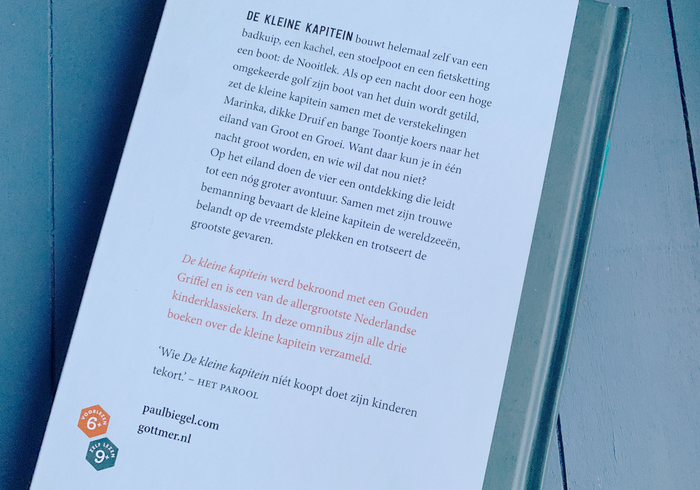 DE KLEINE KAPITEIN bouwt helemaal zelf van een
badkuip, een kachel, een stoelpoot en een fietsketting
een boot: de Nooitlek. Als op een nacht door een hoge
omgekeerde golf zijn boot van het duin wordt getild,
zet de kleine kapitein samen met de verstekelingen
Marinka, dikke Druif en bange Toontje koers naar het
eiland van Groot en Groei. Want daar kun je in één
nacht groot worden, en wie wil dat nou niet?
Op het eiland doen de vier een ontdekking die leidt
tot een nóg groter avontuur. Samen met zijn trouwe
bemanning bevaart de kleine kapitein de wereldzeeën,
belandt op de vreemdste plekken en trotseert de
grootste gevaren.
De kleine kapitein werd bekroond met een Gouden
Griffel en is een van de allergrootste Nederlandse
kinderklassiekers. In deze omnibus zijn alle drie
boeken over de kleine kapitein verzameld.
'Wie De kleine kapitein níét koopt doet zijn kinderen
tekort.' – HET PAROOL
paulbiegel.com
gottmer.nl
VOORLEZEN
6+
ZELF LEZEN
9+